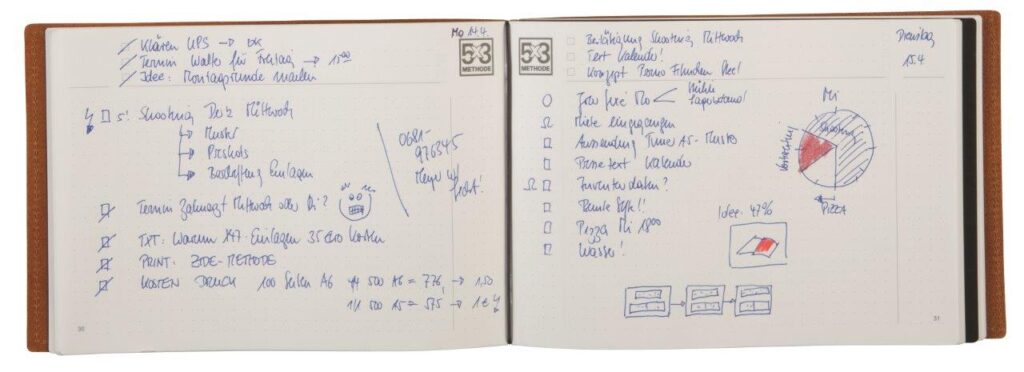 Mo 14.4
Klären UPS → ok
Termin Walts für Freitag → 15⁰⁰
Idee: Montagsrunde mailen
5X3
METHODE
5! Shooting Do/2 Mittwoch
→ Muster
→ Preshots
→ Beschaffung Einlagen
0681-
976345
Meyer
Termin Zahnarzt Mittwoch oder Di?
TXT: Warum X47-Einlagen 35 Euro kosten
PRINT: ZIDE-METHODE
KOSTEN DRUCK 100 Seiten A6 4/4 500 A6 = 776,- → 1,50
1/1 500 A5 = 575 → 1 €
30
5X3
METHODE
Bestätigung Shooting Mittwoch
Text Kalender!
Konzept Promo Filmchen Rec!
Dienstag
15.4
Mo < Mühle
Miete eingegangen
Aussendung Timer A5-Muster
Pressetext Kalender
Inventardaten?
Pizza Mi 18⁰⁰
Wasser!
Mi
Shooting
Vorbereitung
PIZZA
Idee: 47%
31